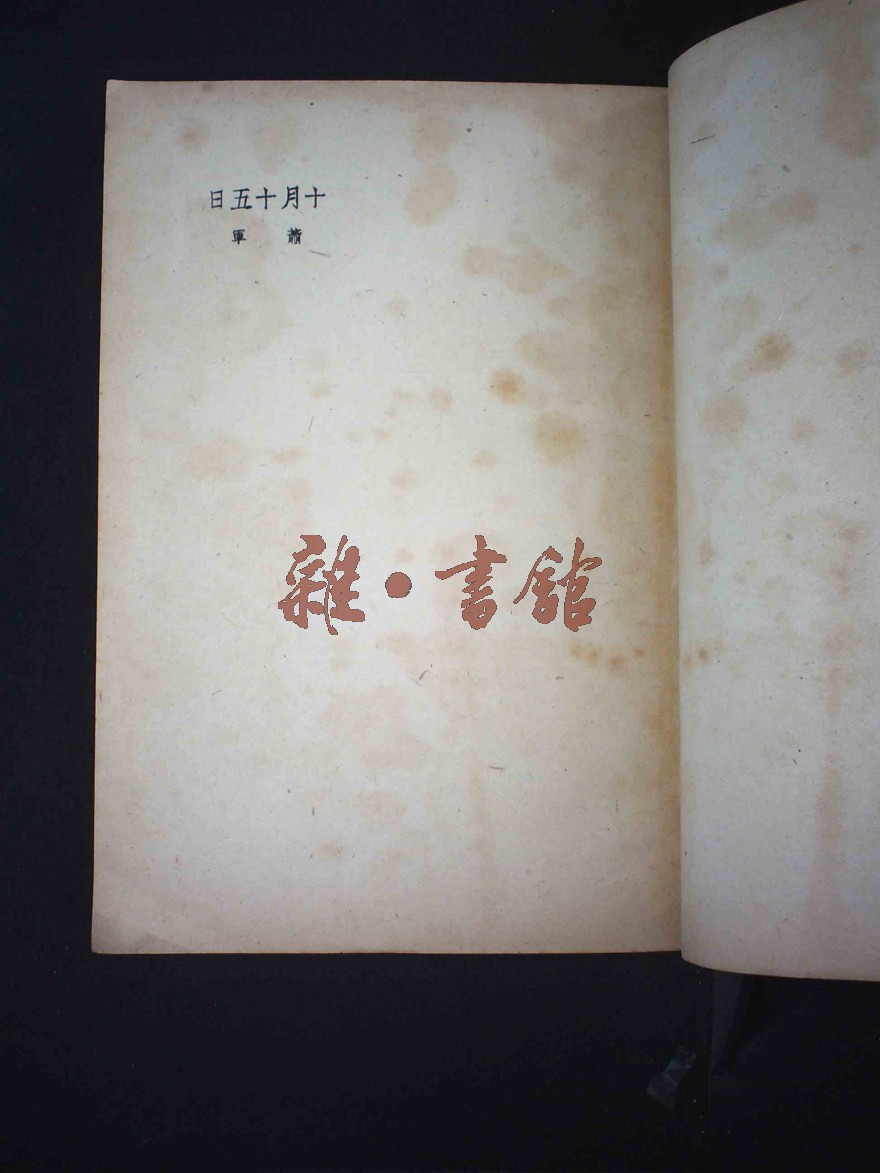 十月十五日
蕭軍
雜·書館